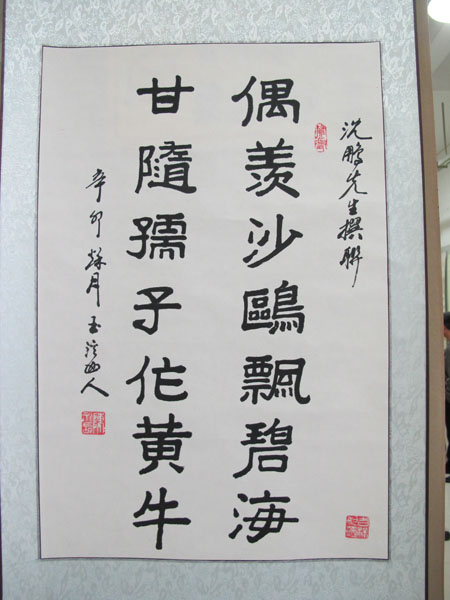 沈鹏先生撰联
偶羡沙鷗飄碧海
甘隨孺子作黄牛
辛卯
月
山人